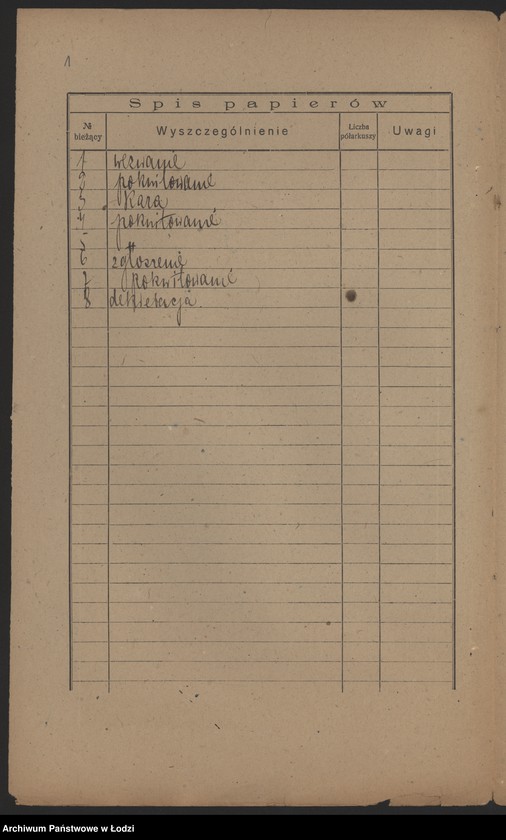 1
Spis papierów
№ bieżący Wyszczególnienie Liczba półarkuszy Uwagi
1 wezwanie
2 pokwitowanie
3 Kara
4 pokwitowanie
5 "
6 zgłoszenie
7 pokwitowanie
8
Archiwum Państwowe w Łodzi